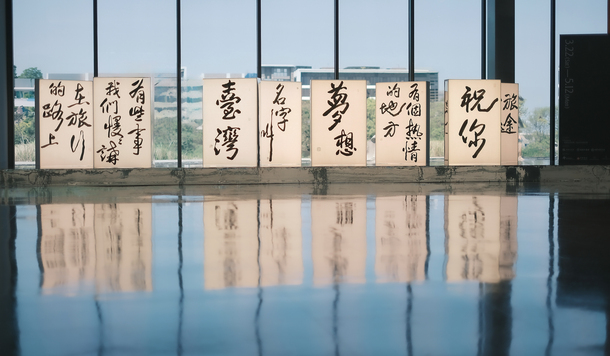 旅途
祝你
有個熱情
的地方
夢想
名字
叫
臺灣
有些事
我們慢慢講
在旅行
的路上